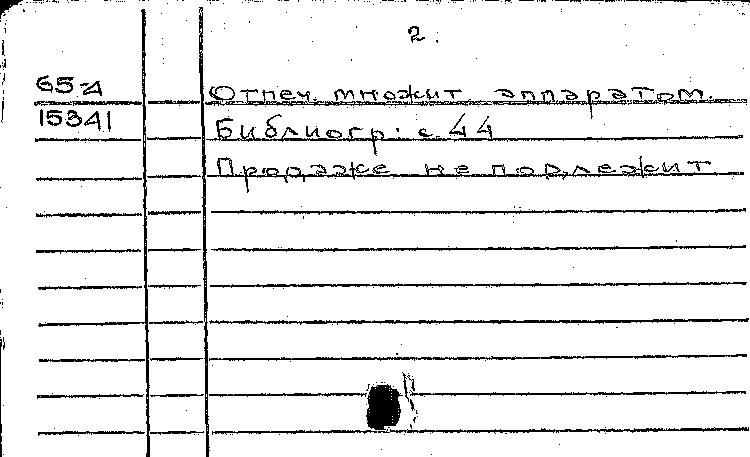 2.
65-4
15341
Отпеч. множит аппаратом.
Библиогр: с 44
Продаже не подлежит